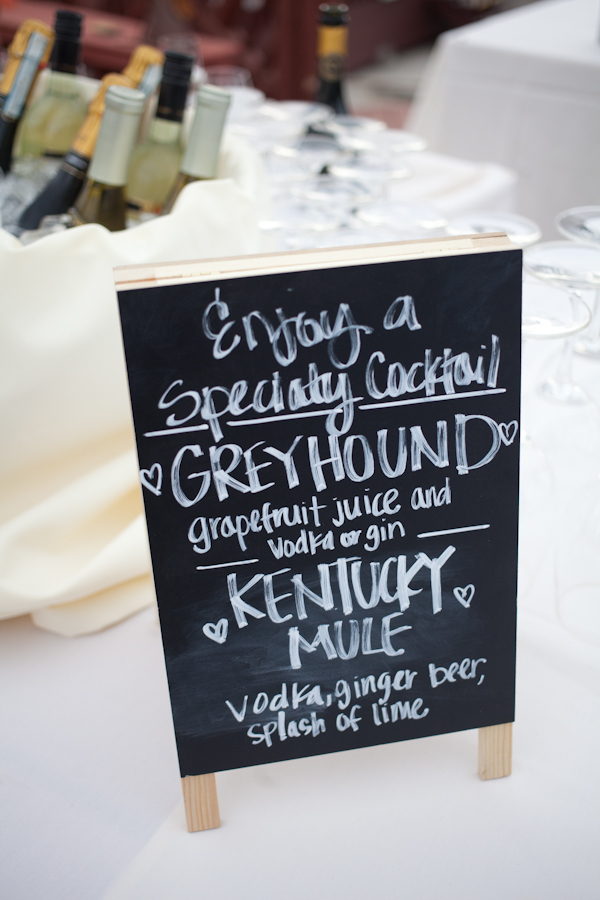 Enjoy a
Specialty Cocktail
GREYHOUND
grapefruit juice and
vodka or gin
KENTUCKY
MULE
vodka, ginger beer,
splash of lime